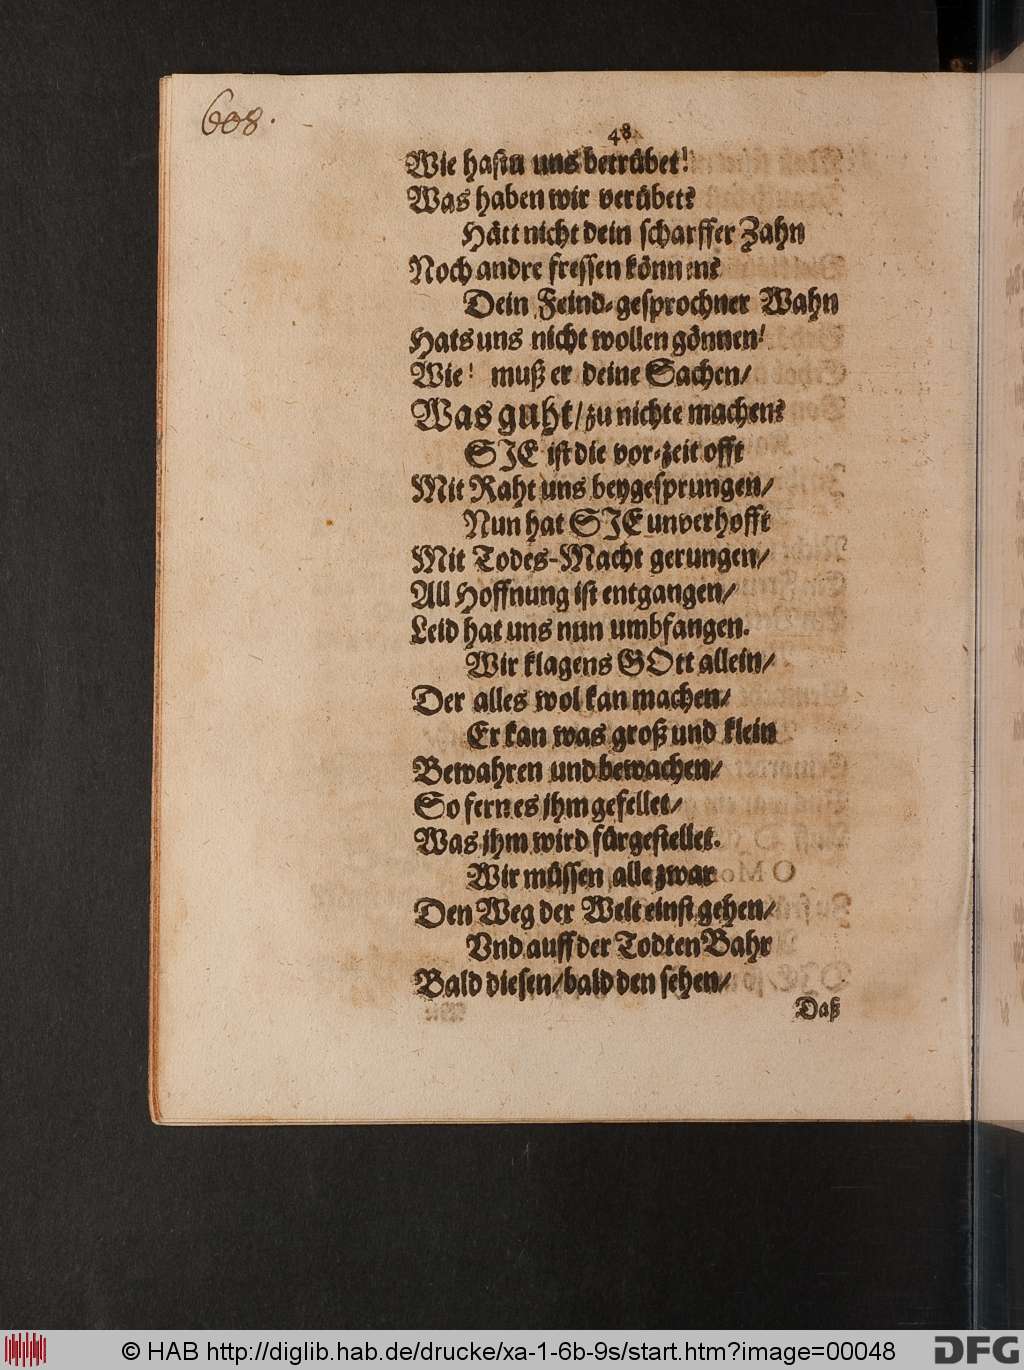 608.
48
Wie hastu uns betrübet!
Was haben wir verübet?
Hätt nicht dein scharffer Zahn
Noch andre fressen können?
Dein Feind-gesprochner Wahn
Hats uns nicht wollen gönnen!
Wie! muß er deine Sachen/
Was guht/ zu nichte machen?
SIE ist die vor-zeit offt
Mit Raht uns beygesprungen/
Nun hat SIE unverhofft
Mit Todes-Macht gerungen/
All Hoffnung ist entgangen/
Leid hat uns nun umbfangen.
Wir klagens GOtt allein/
Der alles wol kan machen/
Er kan was groß und klein
Bewahren und bewachen/
So fern es ihm gefellet/
Was ihm wird fürgestellet.
Wir müssen alle zwar
Den Weg der Welt einst gehen/
Vnd auff der Todten Bahr
Bald diesen/ bald den sehen/
Daß
© HAB http://diglib.hab.de/drucke/xa-1-6b-9s/start.htm?image=00048
DFG